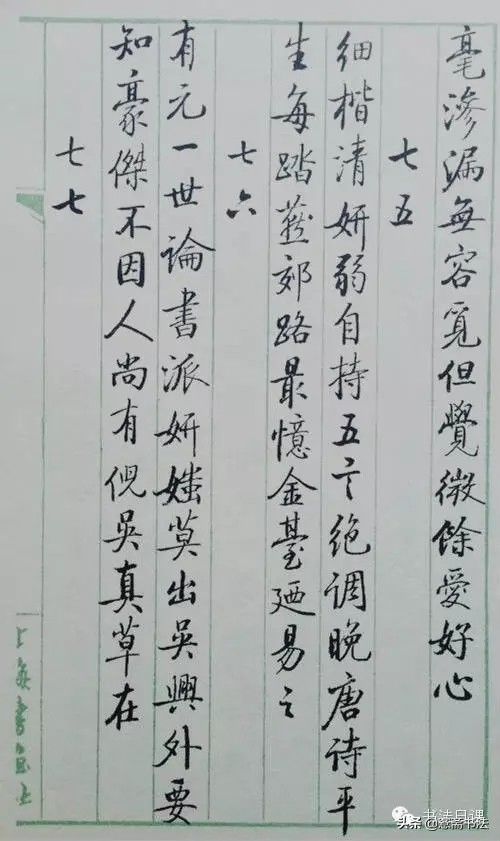 毫渗漏無容覓但覺微餘愛好心
七五
細楷清妍弱自持五言絶調晚唐诗平
生每踏燕郊路最憶金臺廼易之
七六
有元一世論書派妍媸莫出吳興外要
知豪傑不因人尚有倪吳真草在
七七
书法日课
头条@慈斋书法